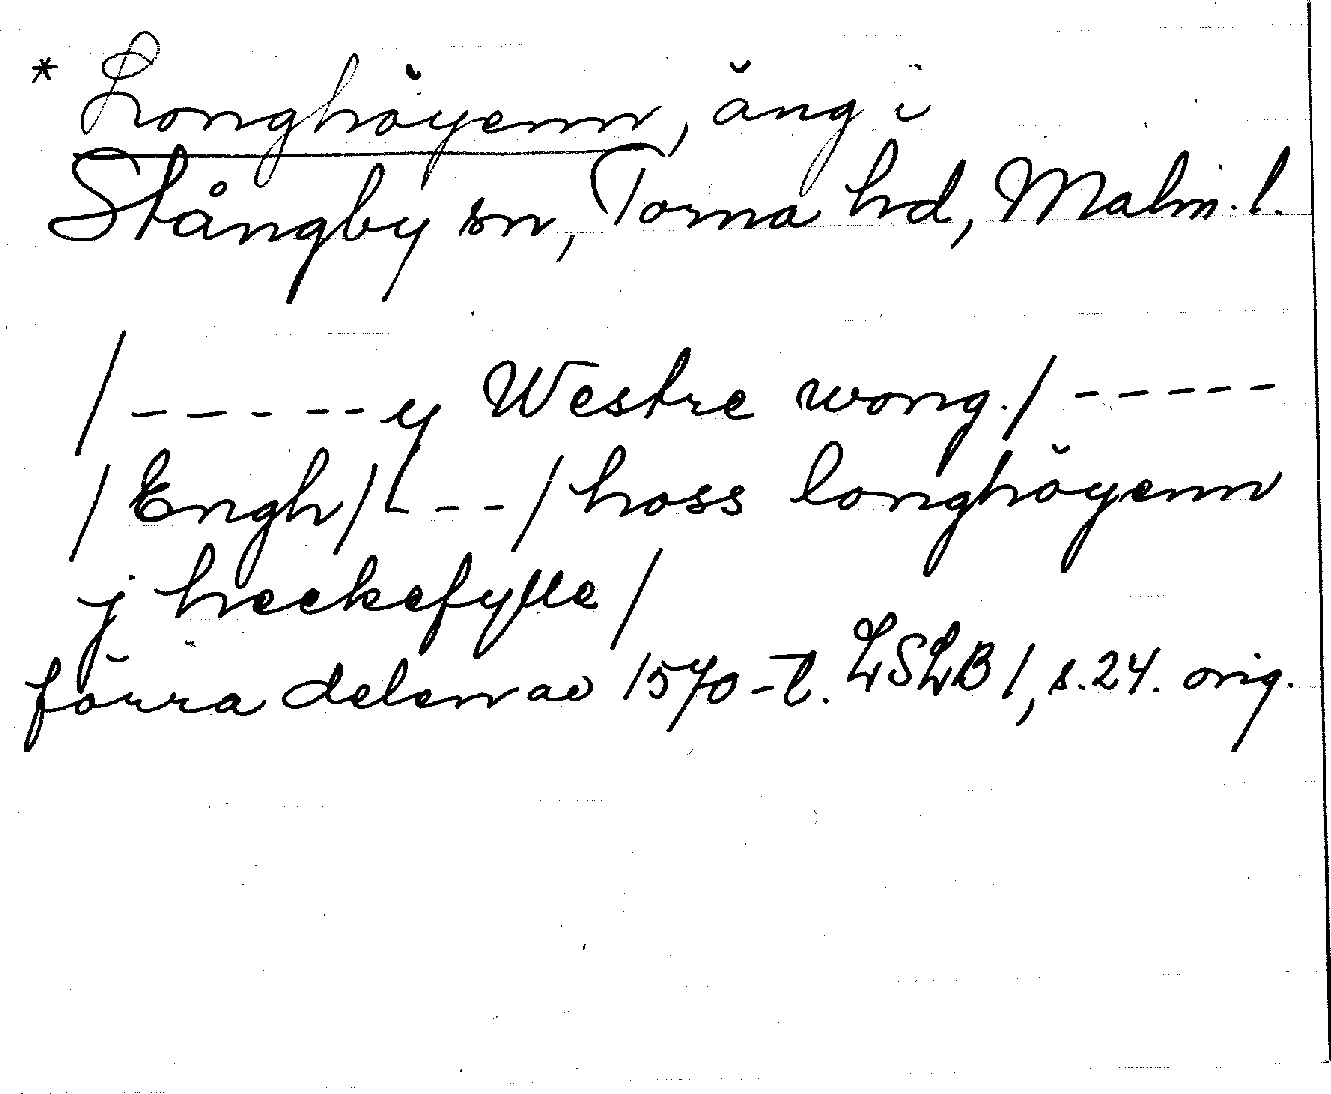 * Longhöyenn, äng i
Stångby sn, Torna hd, Malm. l.
/ - - - - - y Westre wong. / - - - - -
/ Engh / - - - / hoss longhöyenn
j heckefylle /
förra delen av 1570-t. LSLB 1, s. 24. orig.